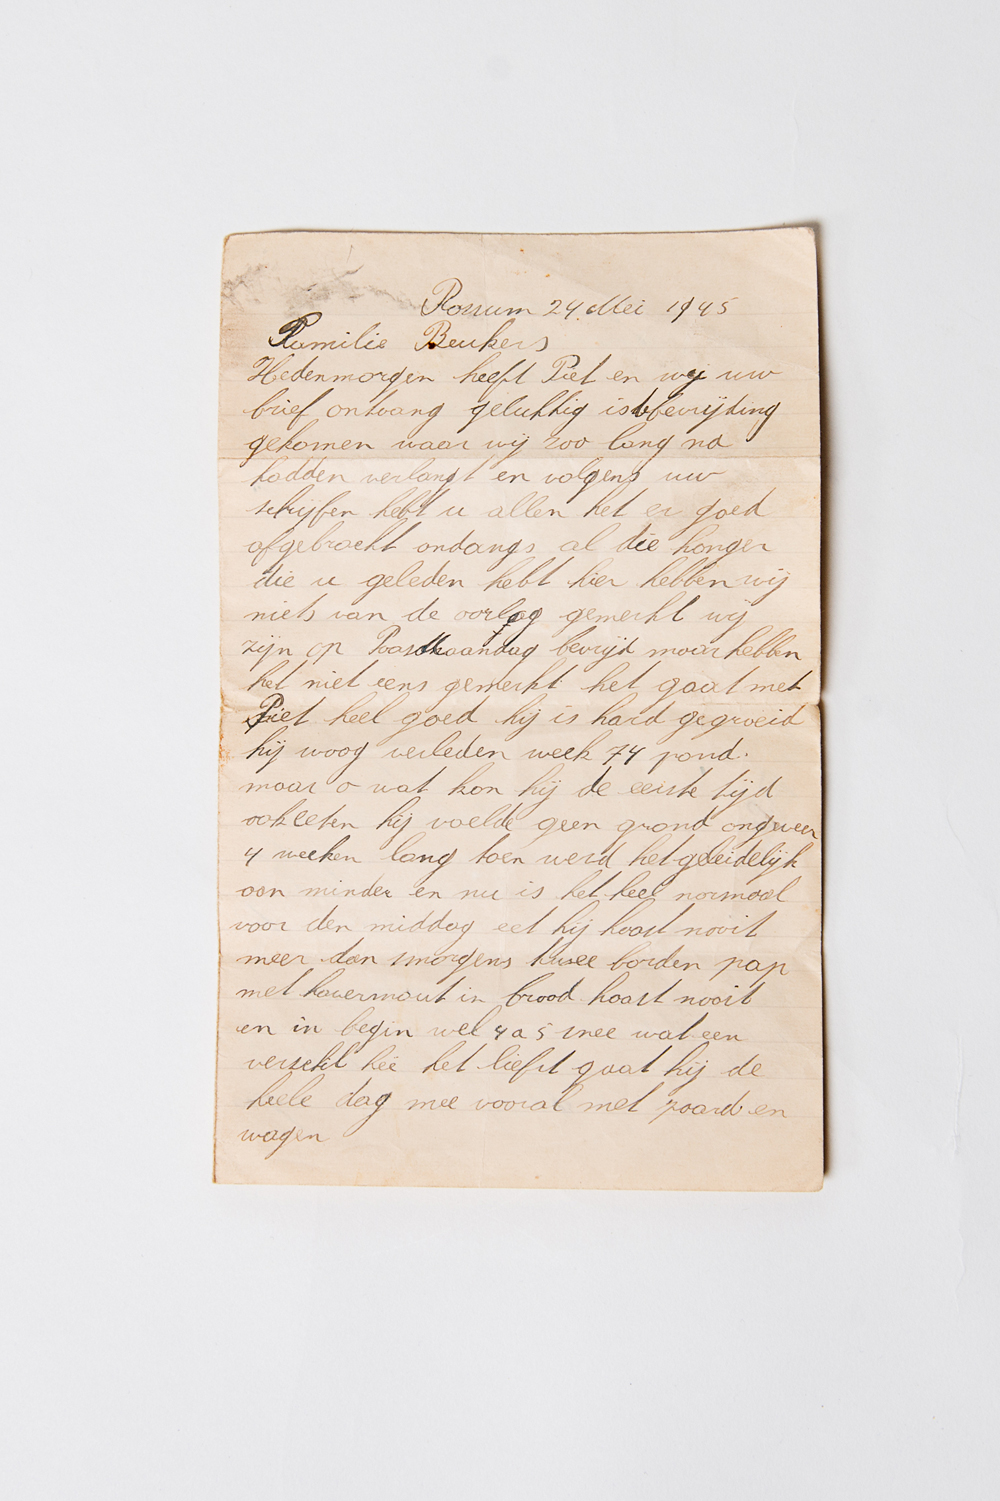 Rossum 24 Mei 1945
Familie Beukers
Hedenmorgen heeft Piet en wij uw
brief ontvang gelukkig is de bevrijding
gekomen waar wij zoo lang na
hadden verlangt en volgens uw
schrijfen hebt u allen het er goed
afgebracht ondangs al die honger
die u geleden hebt hier hebben wij
niets van de oorlog gemerkt wij
zijn op Paasmaandag bevrijd maar hebben
het niet eens gemerkt het gaat met
Piet heel goed hij is hard gegroeid
hij woog verleden week 74 pond.
maar o wat kon hij de eerste tijd
ook eeten hij voelde geen grond ongeveer
4 weeken lang toen werd het geleidelijk
aan minder en nu is het heel normaal
voor den middag eet hij haast nooit
meer dan smorgens twee borden pap
met havermout in brood haast nooit
en in begin wel 4 a 5 snee wat een
verschil hée het liefst gaat hij de
heele dag mee vooral met paard en
wagen